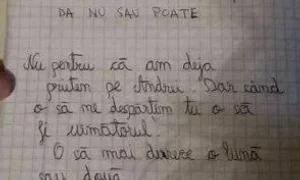 DA NU SAU POATE
Nu pentru că am deja
prieten pe Andrei. Dar când
o să ne despărțim tu o să
fi următorul.
O să mai dureze o lună
sau două